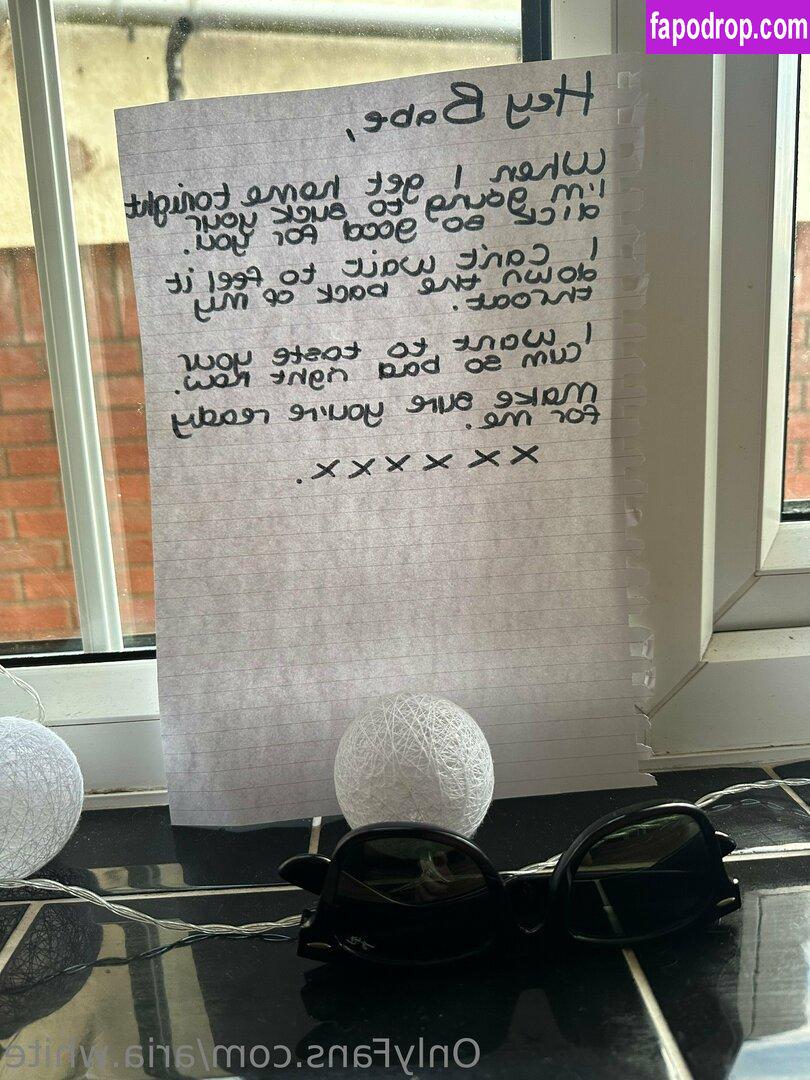 fapodrop.com
Hey Babe,
When I get home tonight
I'm going to suck your
dick so good for you.
I can't wait to feel it
down the back of my
throat.
I want to taste your
cum so bad right now.
Make sure you're ready
for me.
x x x x x x x.
OnlyFans.com/aria.white